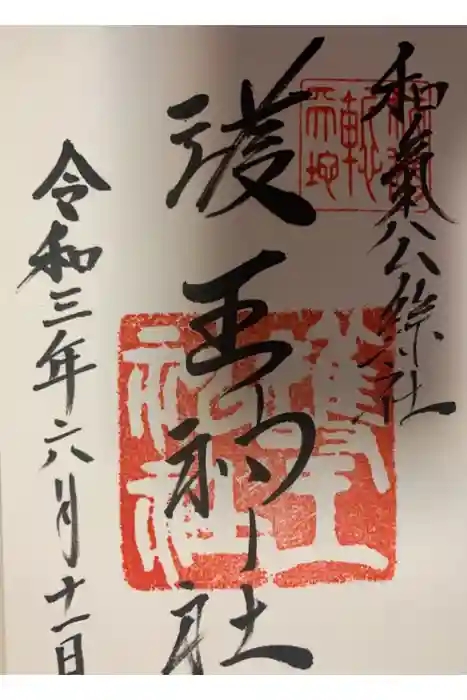 和氣公綜社
護王神社
令和三年六月十一日
護王神社